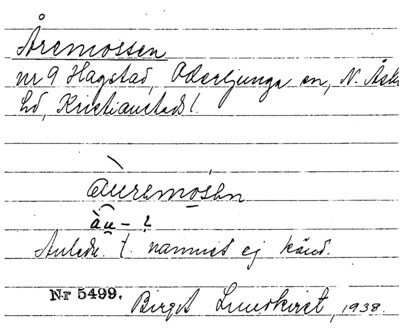 Åremossen
nr 9 Hagstad, Oderljunga sn, N. Åsbo
hd, Kristianstads l.
àuremåsen
àu –
Anledn. t. namnet ej känd.
Nr 5499. Birgit Lundkvist, 1938.